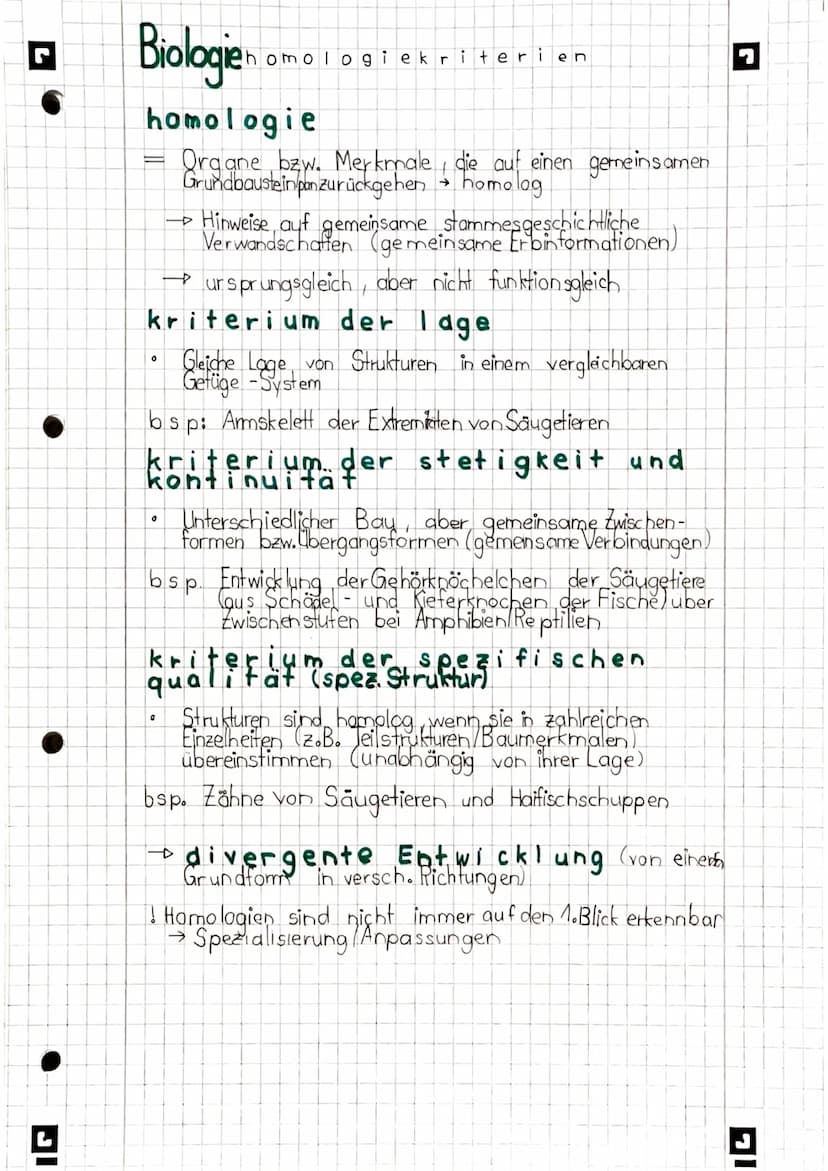 Biologie homologiekriterien
homologie
= Organe bzw. Merkmale, die auf einen gemeinsamen
Grundbaustein/plan zurückgehen → homolog
→ Hinweise auf gemeinsame stammesgeschichtliche
Verwandschaften (gemeinsame Erbinformationen)
→ ursprungsgleich, aber nicht funktionsgleich
kriterium der lage
• Gleiche Lage von Strukturen in einem vergleichbaren
Gefüge-System
bsp: Armskelett der Extremitäten von Säugetieren
kriterium der stetigkeit und
kontinuität
• Unterschiedlicher Bau, aber gemeinsame Zwischen-
formen bzw. Übergangsformen (gemensame Verbindungen)
bsp. Entwicklung der Gehörknöchelchen der Säugetiere
(aus Schädel- und Kieferknochen der Fische) über
Zwischenstufen bei Amphibien/Reptilien
kriterium der spezifischen
qualität (spez. Struktur)
• Strukturen sind homolog, wenn sie in zahlreichen
Einzelheiten (z.B. Teilstrukturen/Baumerkmalen)
übereinstimmen (unabhängig von ihrer Lage)
bsp. Zähne von Säugetieren und Haifischschuppen
→ divergente Entwicklung (von einer
Grundform in versch. Richtungen)
! Homologien sind nicht immer auf den 1. Blick erkennbar
→ Spezialisierung/Anpassungen